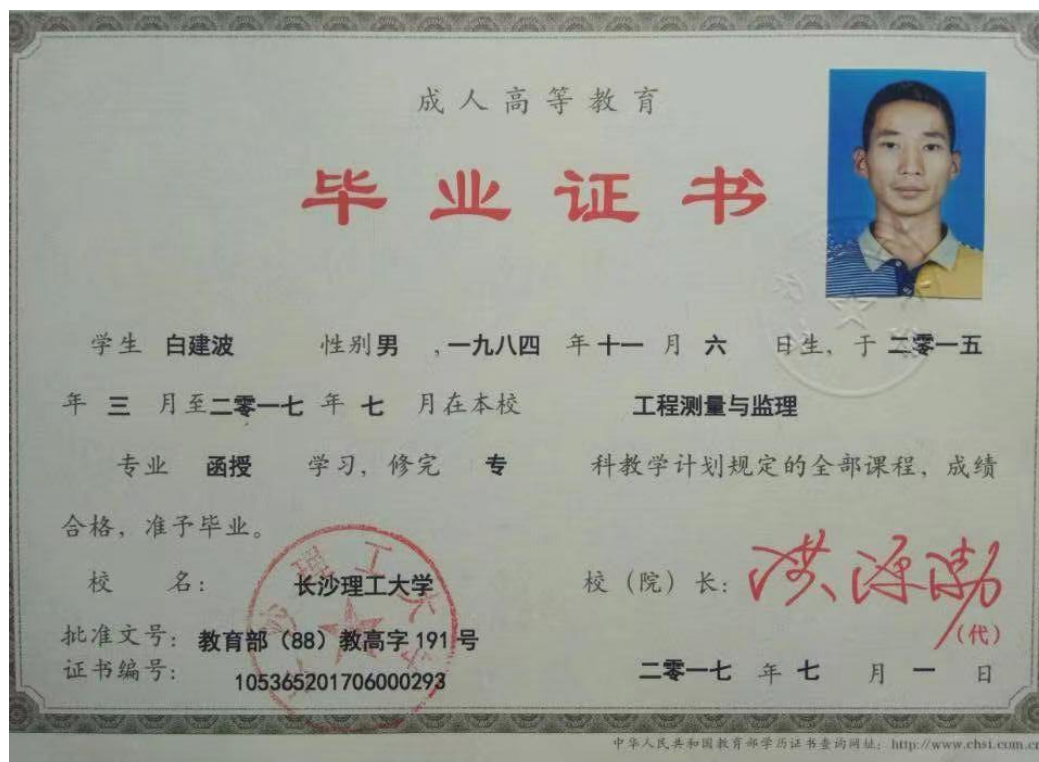 成人高等教育
毕业证书
学生 白建波 性别 男 ，一九八四 年 十一 月 六 日生，于 二零一五
年 三 月至 二零一七 年 七 月在本校 工程测量与监理
专业 函授 学习，修完 专 科教学计划规定的全部课程，成绩
合格，准予毕业。
校 名： 长沙理工大学 校（院）长： 洪源渤
（代）
批准文号： 教育部（88）教高字 191 号
证书编号： 105365201706000293 二零一七 年 七 月 一 日
中华人民共和国教育部学历证书查询网址：http://www.chsi.com.cn